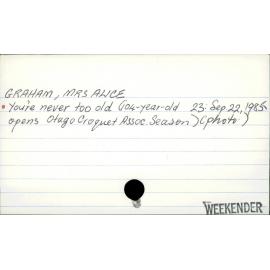 GRAHAM, MRS ALICE
• You're never too old (104-year-old 23: Sep.22, 1985
opens Otago Croquet Assoc. Season) (photo)
WEEKENDER